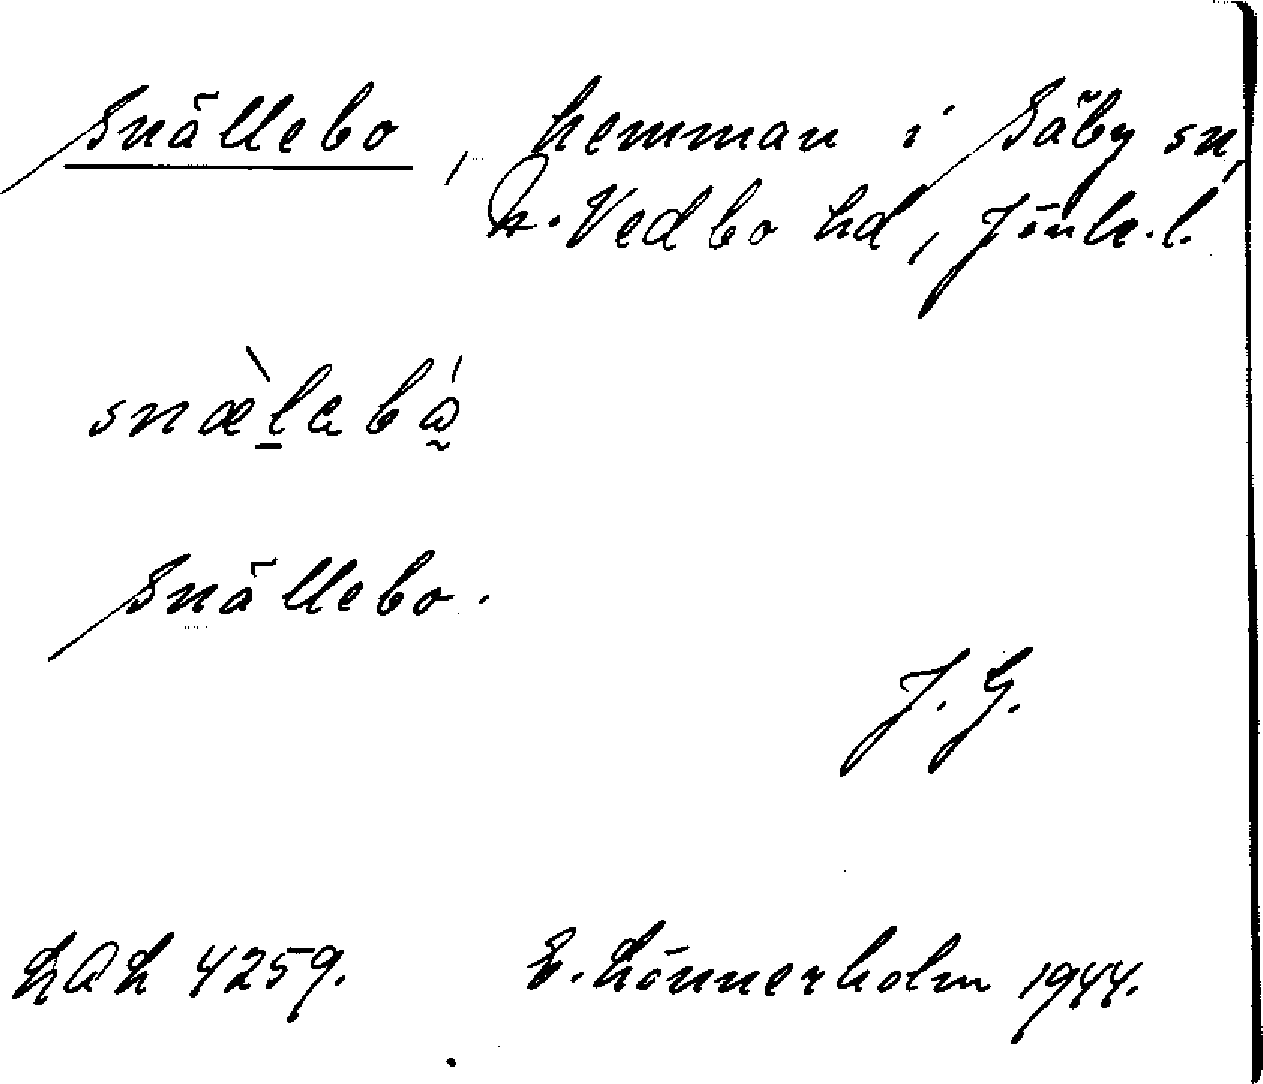 Snällebo, hemman i Säby sn,
N. Vedbo hd, Jönk. l.
snæ̀lebá
Snällebo.
J. G.
4259. E. Lönnerholm 1944.